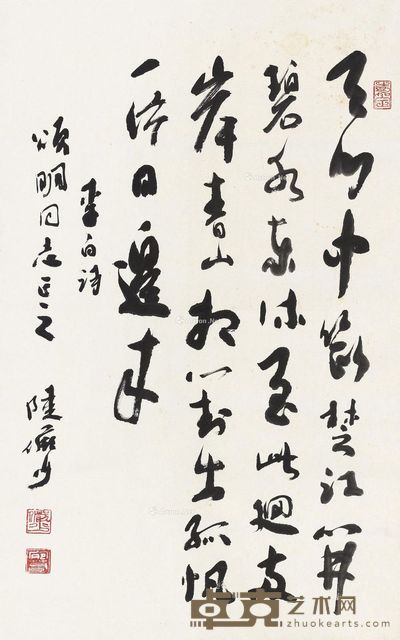 天門中斷楚江開
碧水東流至此迴兩
岸青山相對出孤帆
一片日邊來
李白詩
頌明同志正之 陸儼少
卓克艺术网
zhuokearts.com